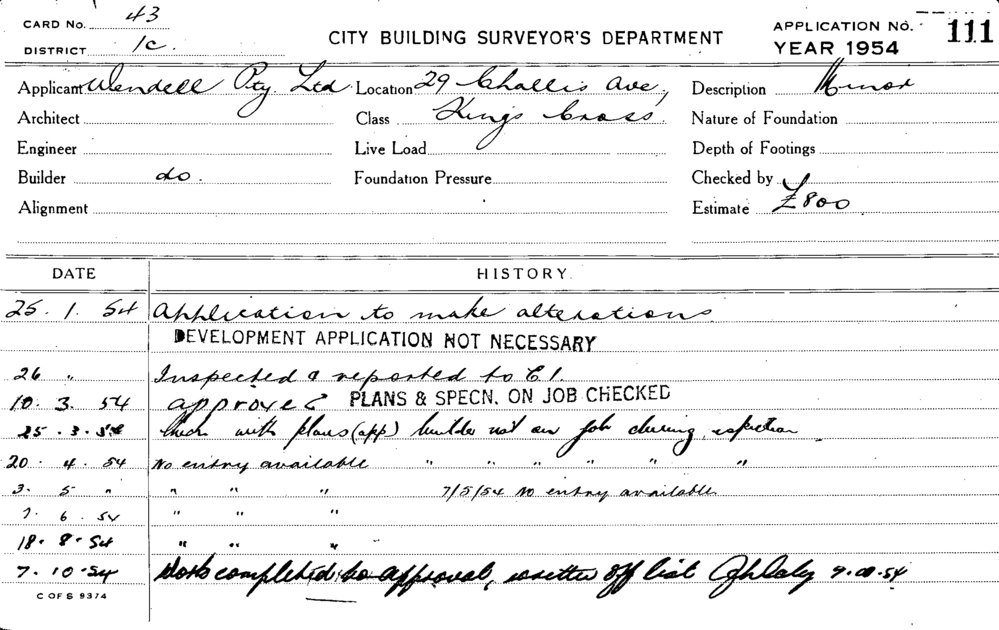 CARD No. 43
DISTRICT 1c.
CITY BUILDING SURVEYOR'S DEPARTMENT
APPLICATION No. 111
YEAR 1954
Applicant Wendell Pty Ltd Location 29 Challis Ave, Description Minor
Architect Class Kings Cross Nature of Foundation
Engineer Live Load Depth of Footings
Builder do. Foundation Pressure Checked by
Alignment Estimate £800
DATE HISTORY.
25. 1. 54 Application to make alterations
DEVELOPMENT APPLICATION NOT NECESSARY
26 " Inspected & reported to C.I.
10. 3. 54 approved PLANS & SPECN. ON JOB CHECKED
25. 3. 54 with plans (app) builder not on job during inspection
20. 4. 54 No entry available " " " " " "
3. 5 " " " " 7/5/54 No entry available
7. 6. 54 " " "
18. 8. 54 " " "
7. 10. 54 Work completed to approval, written off list 54
C OF S 9374